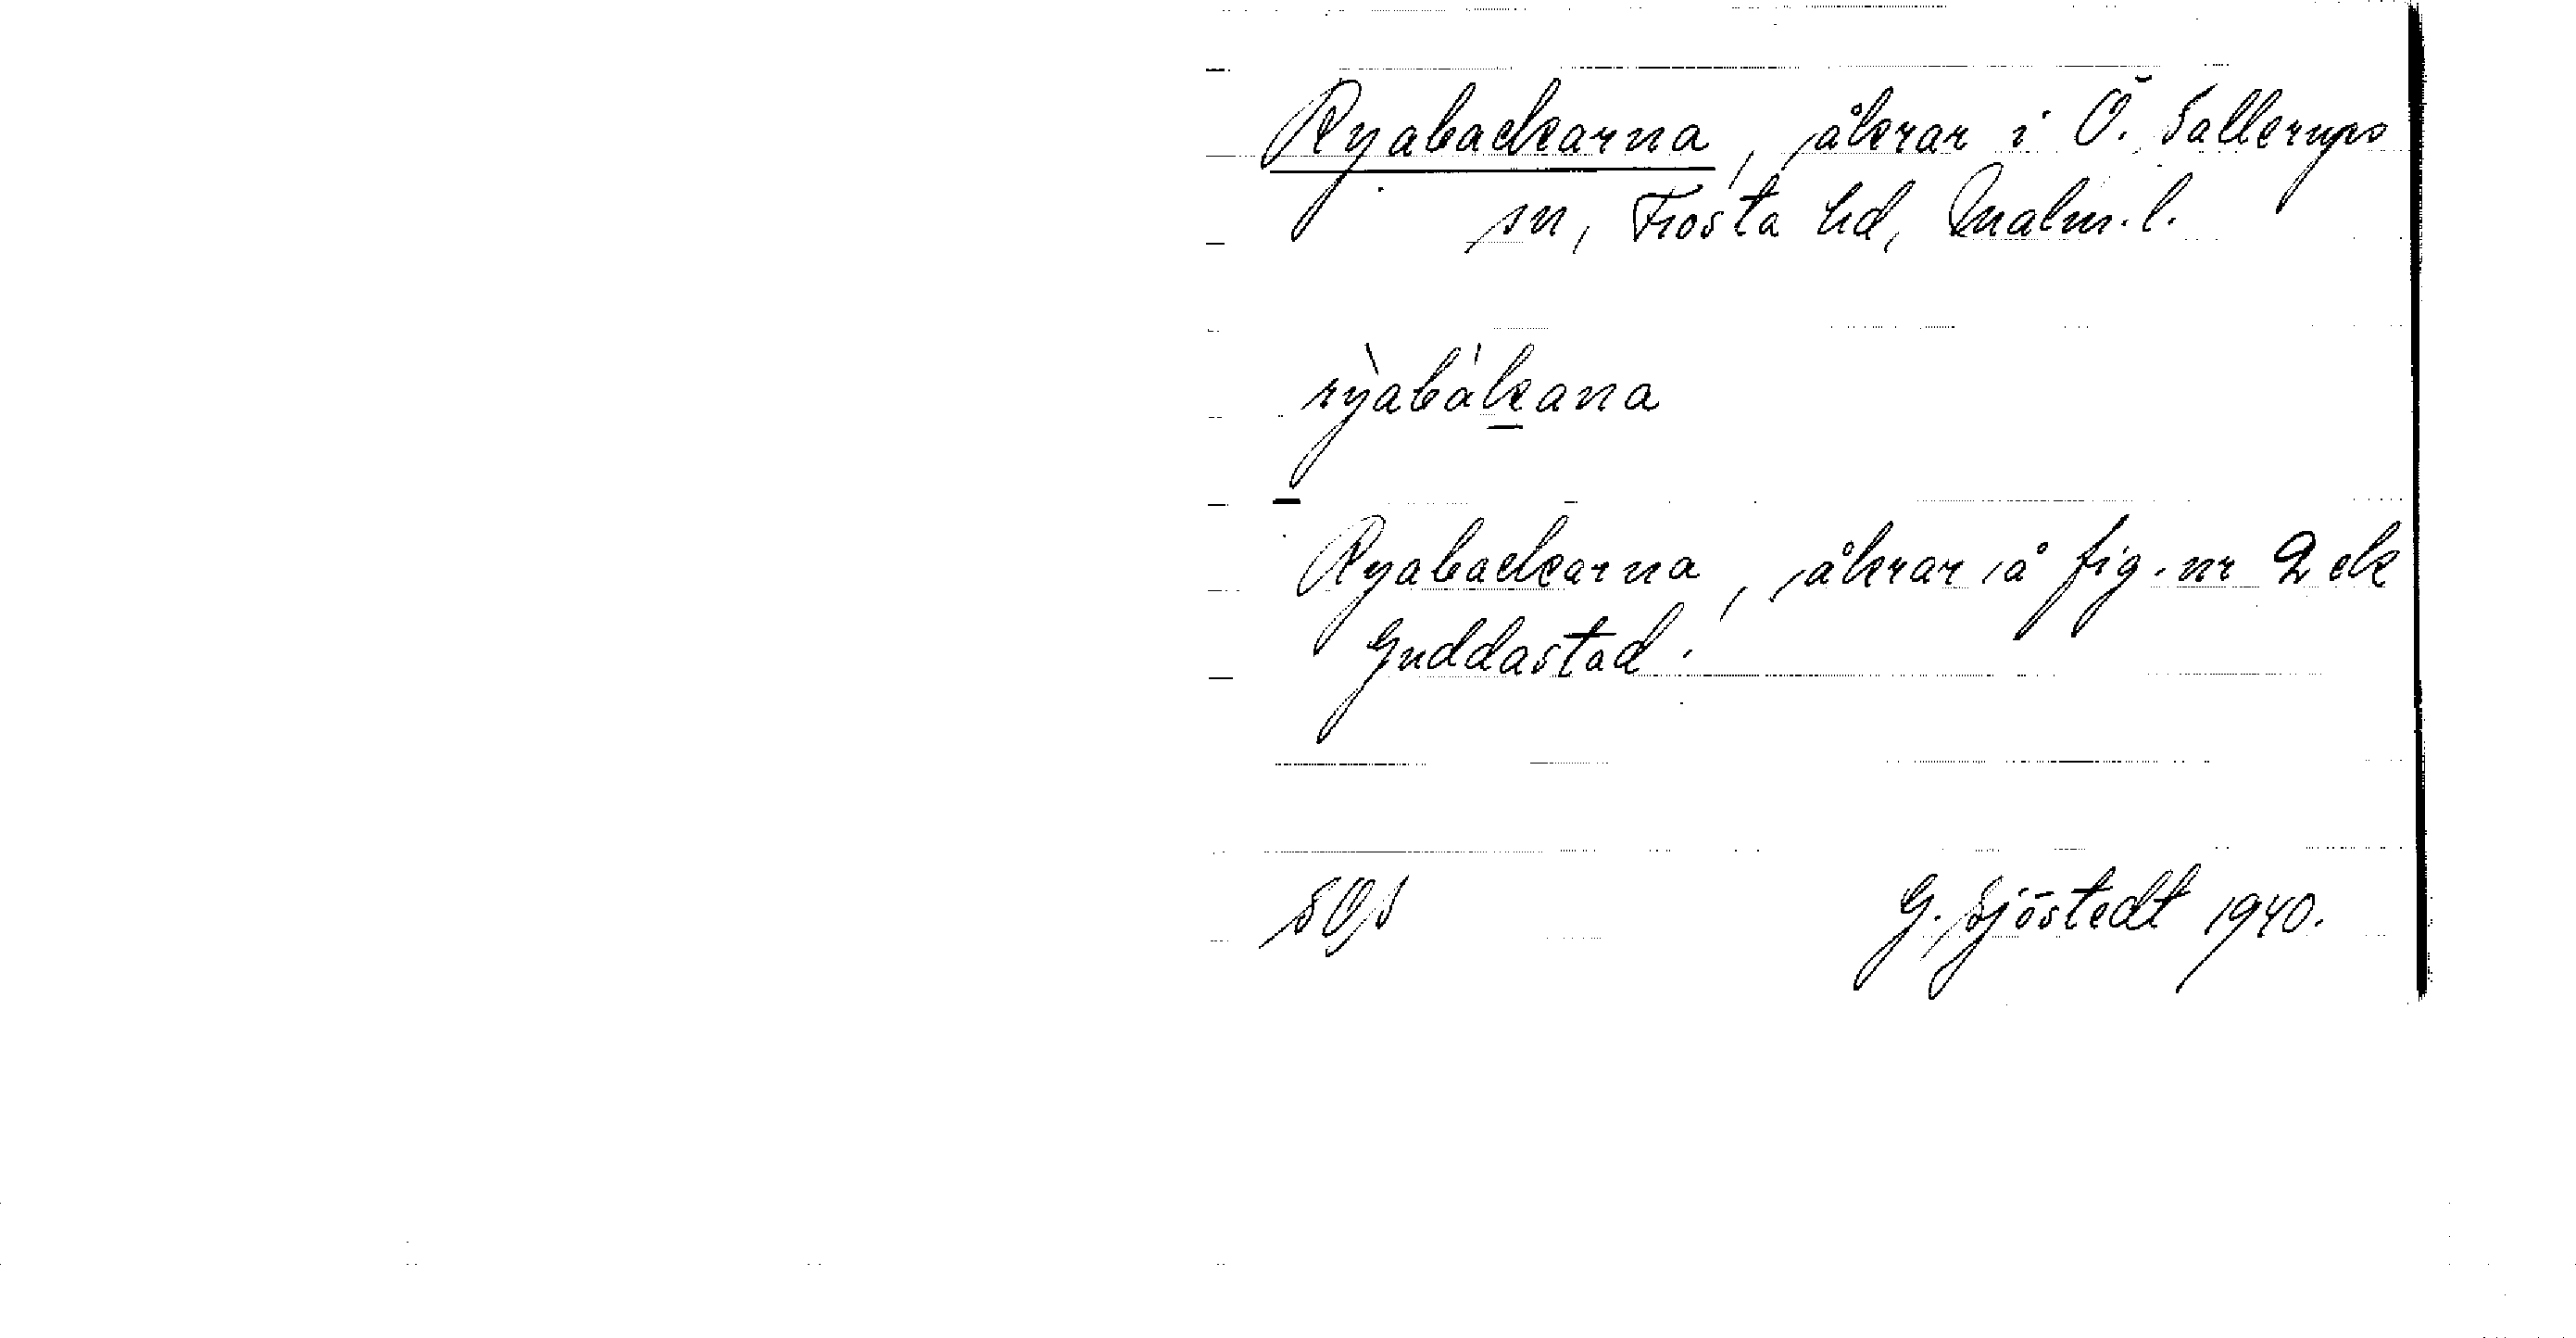 Ryabackarna, åkrar i Ö. Sallerups
sn, Frosta hd, Malm. l.
rỳabákana
Ryabackarna, åkrar å fig. nr 2 ek
Guddastad.
SOS
G. Sjöstedt 1940.